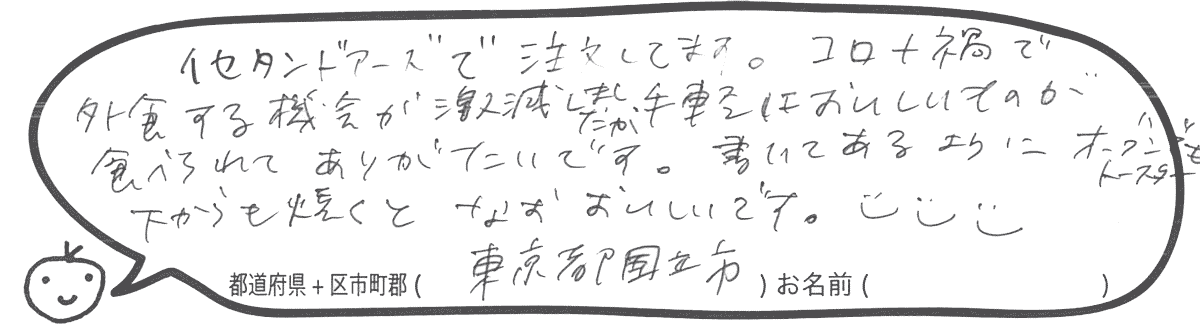 イセタンドアーズで注文してます。コロナ禍で
外食する機会が激減しましたが、手軽においしいものが
食べられてありがたいです。書いてあるようにオーブントースターでも
下からも焼くとなおおいしいです。
都道府県+区市町郡(東京都国立市)お名前( )